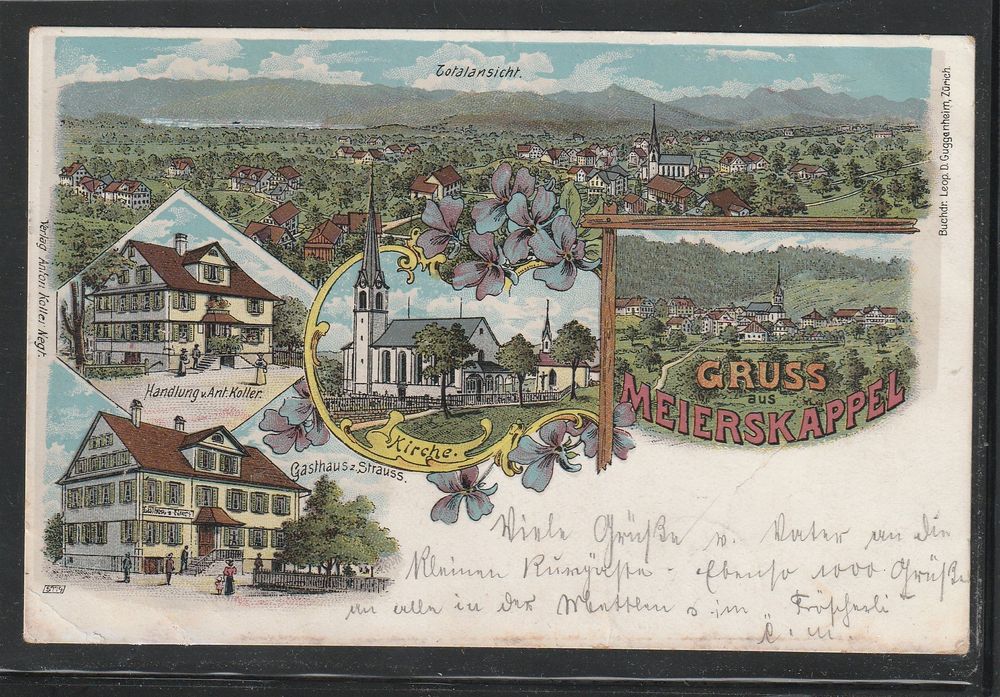 Totalansicht.
Buchdr. Leop. D. Guggenheim, Zürich.
Verlag Anton Koller, Negt.
Handlung v. Ant. Koller.
Kirche.
GRUSS
aus
MEIERSKAPPEL
Gasthaus z. Strauss.
Viele Grüße v. Vater an die
kleinen Kurgäste - Ebenso 1000 Grüße
an alle in der Mettlen & im „Fröscherli